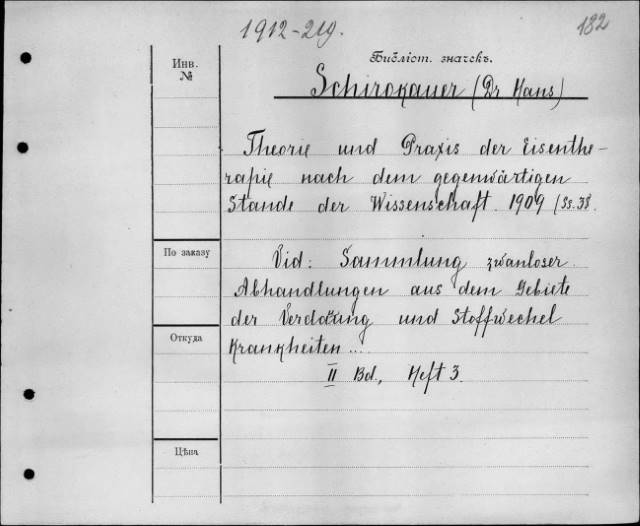 1912-219.
182
Инв.
№
Библіот. значекъ.
Schirokauer (Dr Hans)
Theorie und Praxis der Eisenthe-
rapie nach dem gegenwärtigen
Stande der Wissenschaft. 1909 (Ss. 38.
По заказу
Vid: Sammlung zwanloser
Abhandlungen aus dem Gebiete
der Verdauung und Stoffwechel
Откуда
Krankheiten ....
II Bd, Heft 3.
Цѣна